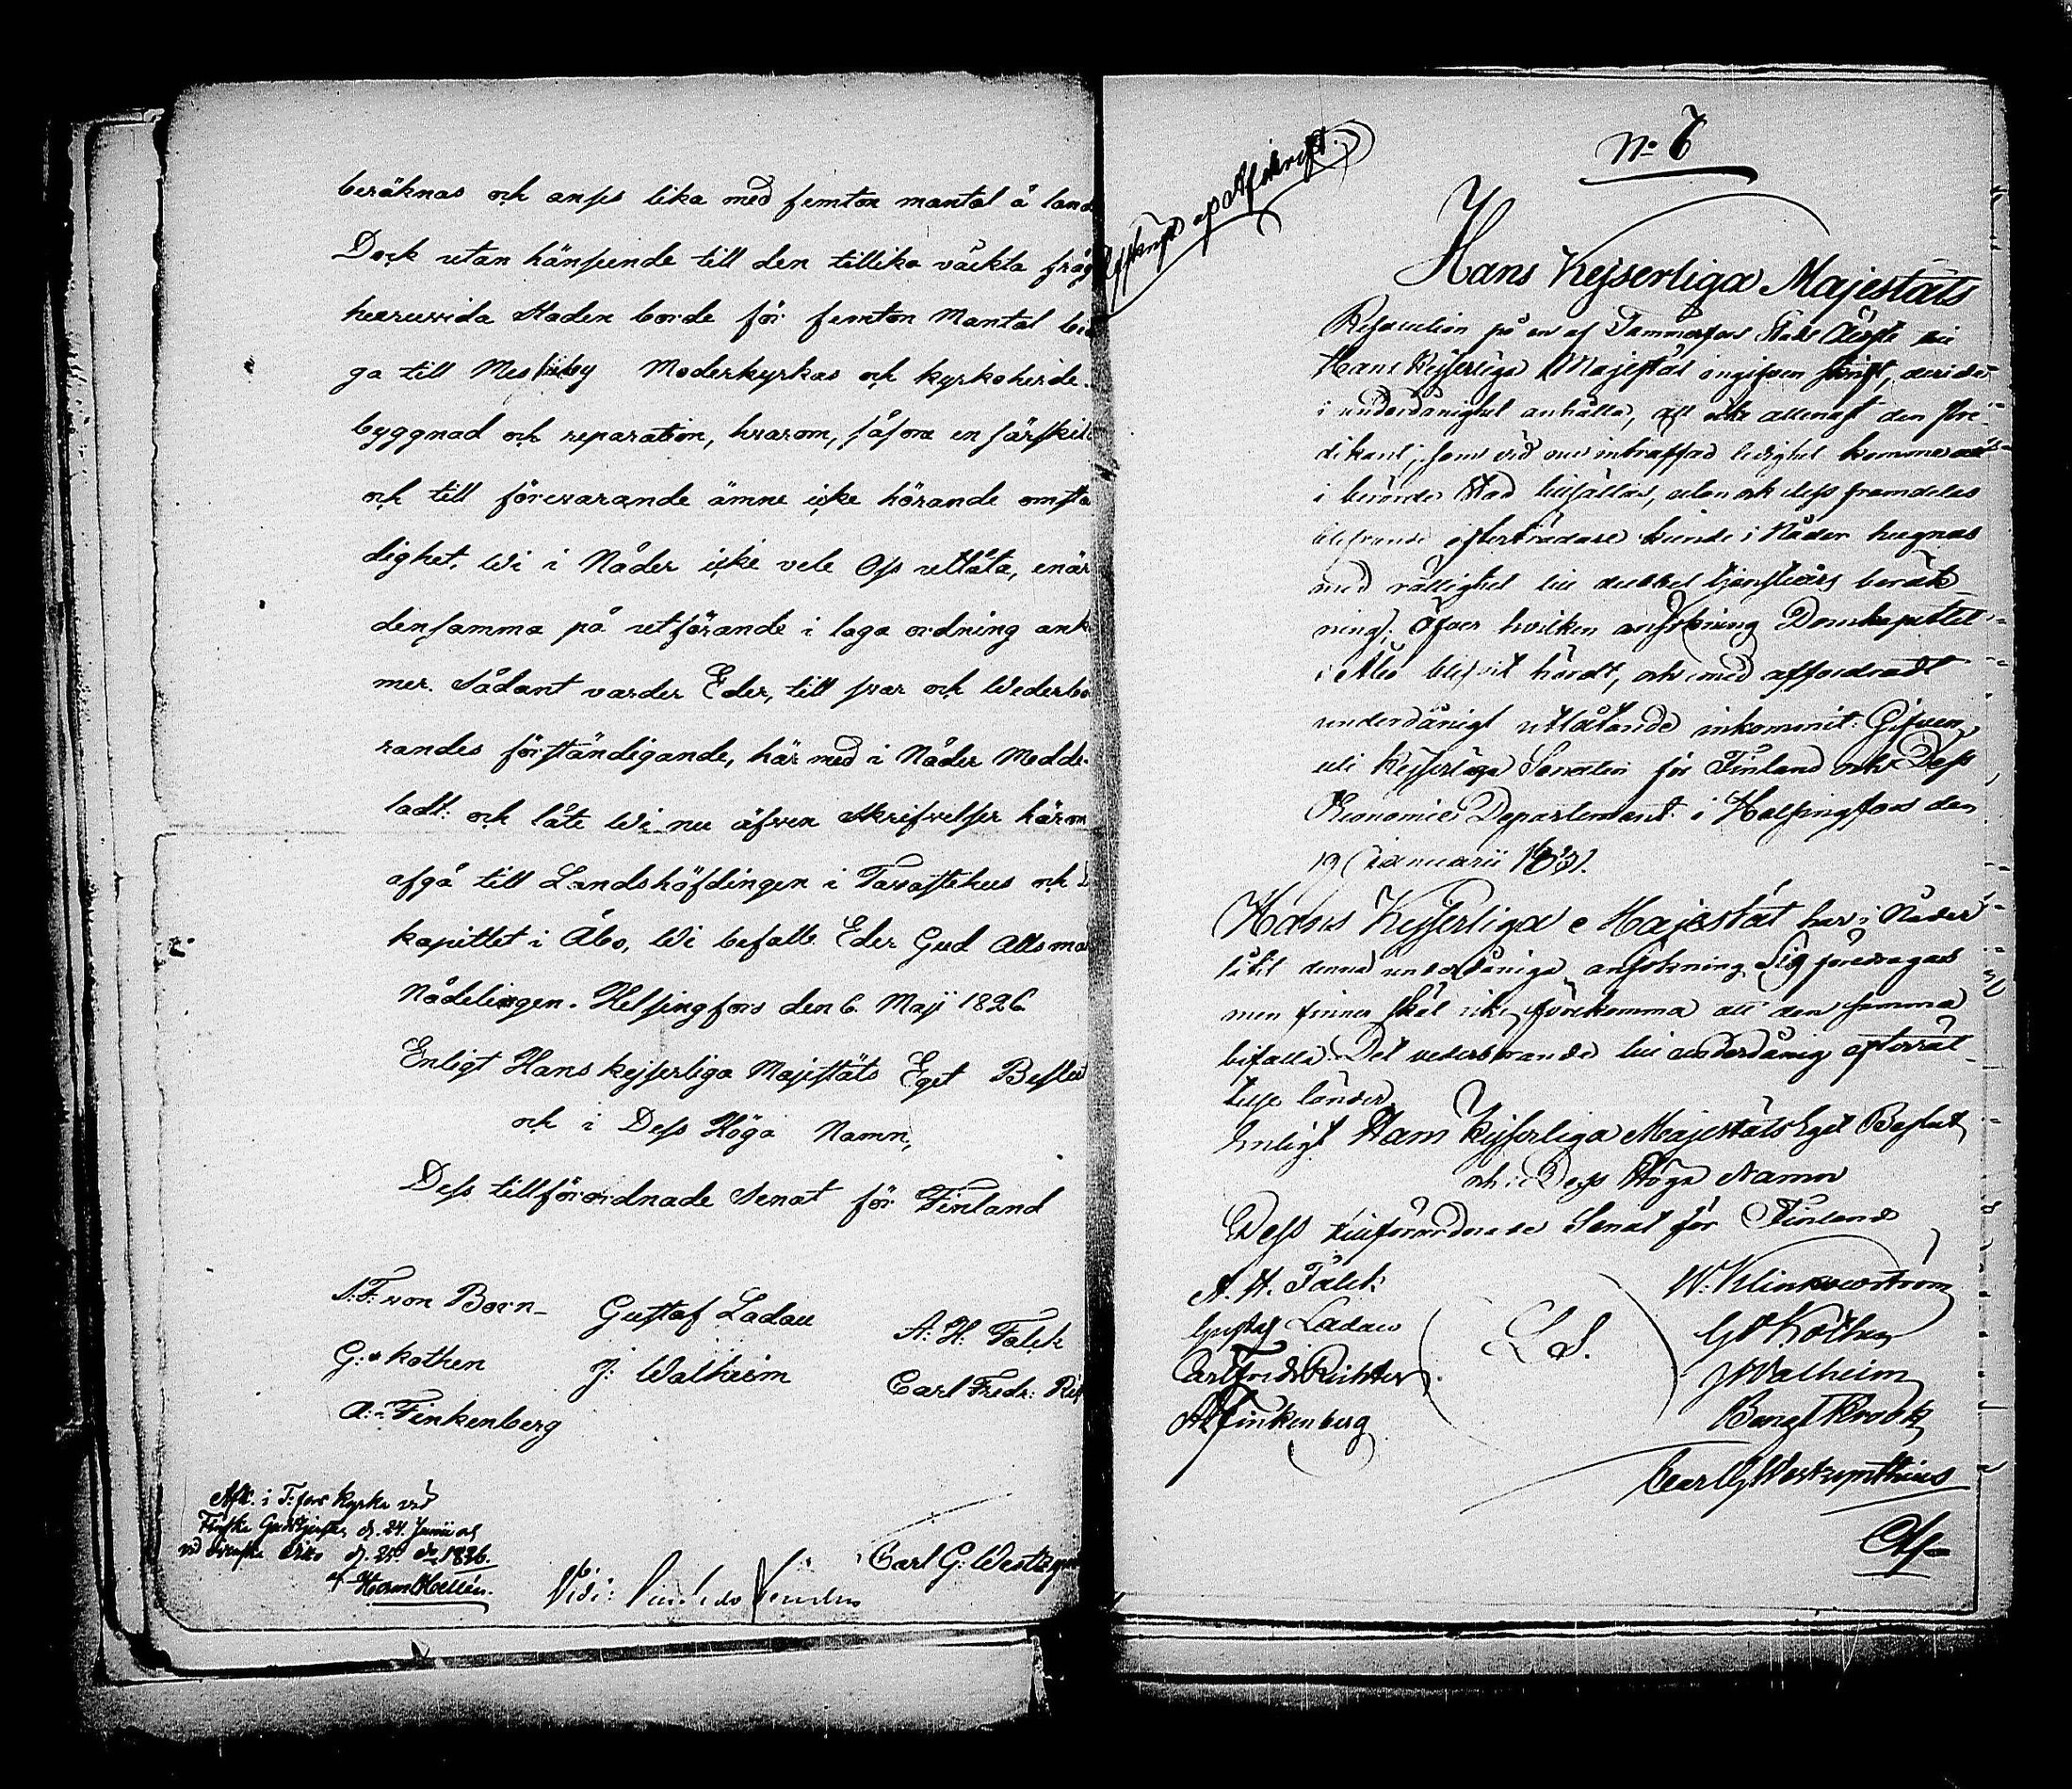 beräknas och anses lika med femton mantal å land
Dock utan hänseende till den tillika väckta fråg
huruvida Staden borde för femton Mantal bid
ga till Messuby Moderkyrkas och kyrkoherde-
byggnad och reparation, hvarom, såsom en särskild
och till förevarande ämne icke hörande omstä
dighet, Wi i Nåder icke vele Oss utlåta, enär
densamma på utförande i laga ordning anko
mer. Sådant varder Eder, till svar och Wederbö
randes förständigande, här med i Nåder Medde-
ladt: och låte Wi nu äfven Skrifvelser härom
afgå till Landshöfdingen i Tavastehus och
kapitlet i Åbo, Wi befalle Eder Gud Allsmä
Nådeligen. Helsingfors den 6 Maji 1826
Enligt Hans kejserliga Majestäts Eget Beslut
och i Dess Höga Namn,
Dess tillförordnade Senat för Finland
S:F: von Born- Gustaf Ladau A: H. Falck
G: v Kothen J: Walheim Carl Fredr:
A: Finkenberg
Carl G: Westzyn
Afk. i T:fors kyrka vid
Finska Gudstjensten d. 24 Junii och
vid Svenska d. 25 1826.
af Herm Hellén.
Vidi:
No 7
Afskrift af Afskrift.
Hans Kejserliga Majestäts
Resolution på en af Tammerfors Stads Äldste hos
Hans Kejserliga Majestät ingifven skrift, deri de
i underdånighet anhålla, att icke allenast den Pre-
dikant, som vid nu inträffad ledighet kommer att
i berörde Stad tillsättas, utan ock dess framdeles
blifvande efterträdare kunde i Nåder hugnas
med rättighet till dubbel tjenstårs beräk-
ning; öfver hvilken ansökning Domkapitlet
i Åbo blifvit hördt, och med affordradt
underdånigt utlåtande inkommit: Gifven
uti Kejserliga Senaten för Finland och Dess
Economie Departement i Helsingfors den
19 Januarii 1831.
Hans Kejserliga Majestät har i Nåder
låtit denna underdåniga ansökning Sig föredragas
men finner skäl icke förekomma att den samma
bifalla. Det vederbörande till underdånig efterrät-
telse länder.
Enligt Hans Kejserliga Majestäts Eget Beslut
och i Dess Höga Namn
Dess tillförordnade Senat för Finland
A. H. Falck W. Klinkowström
Gustaf Ladau L.S. G v Kothen
Carl Fredr Richter J Walheim
A Finkenberg Bengt Krook
Carl G Westzynthius